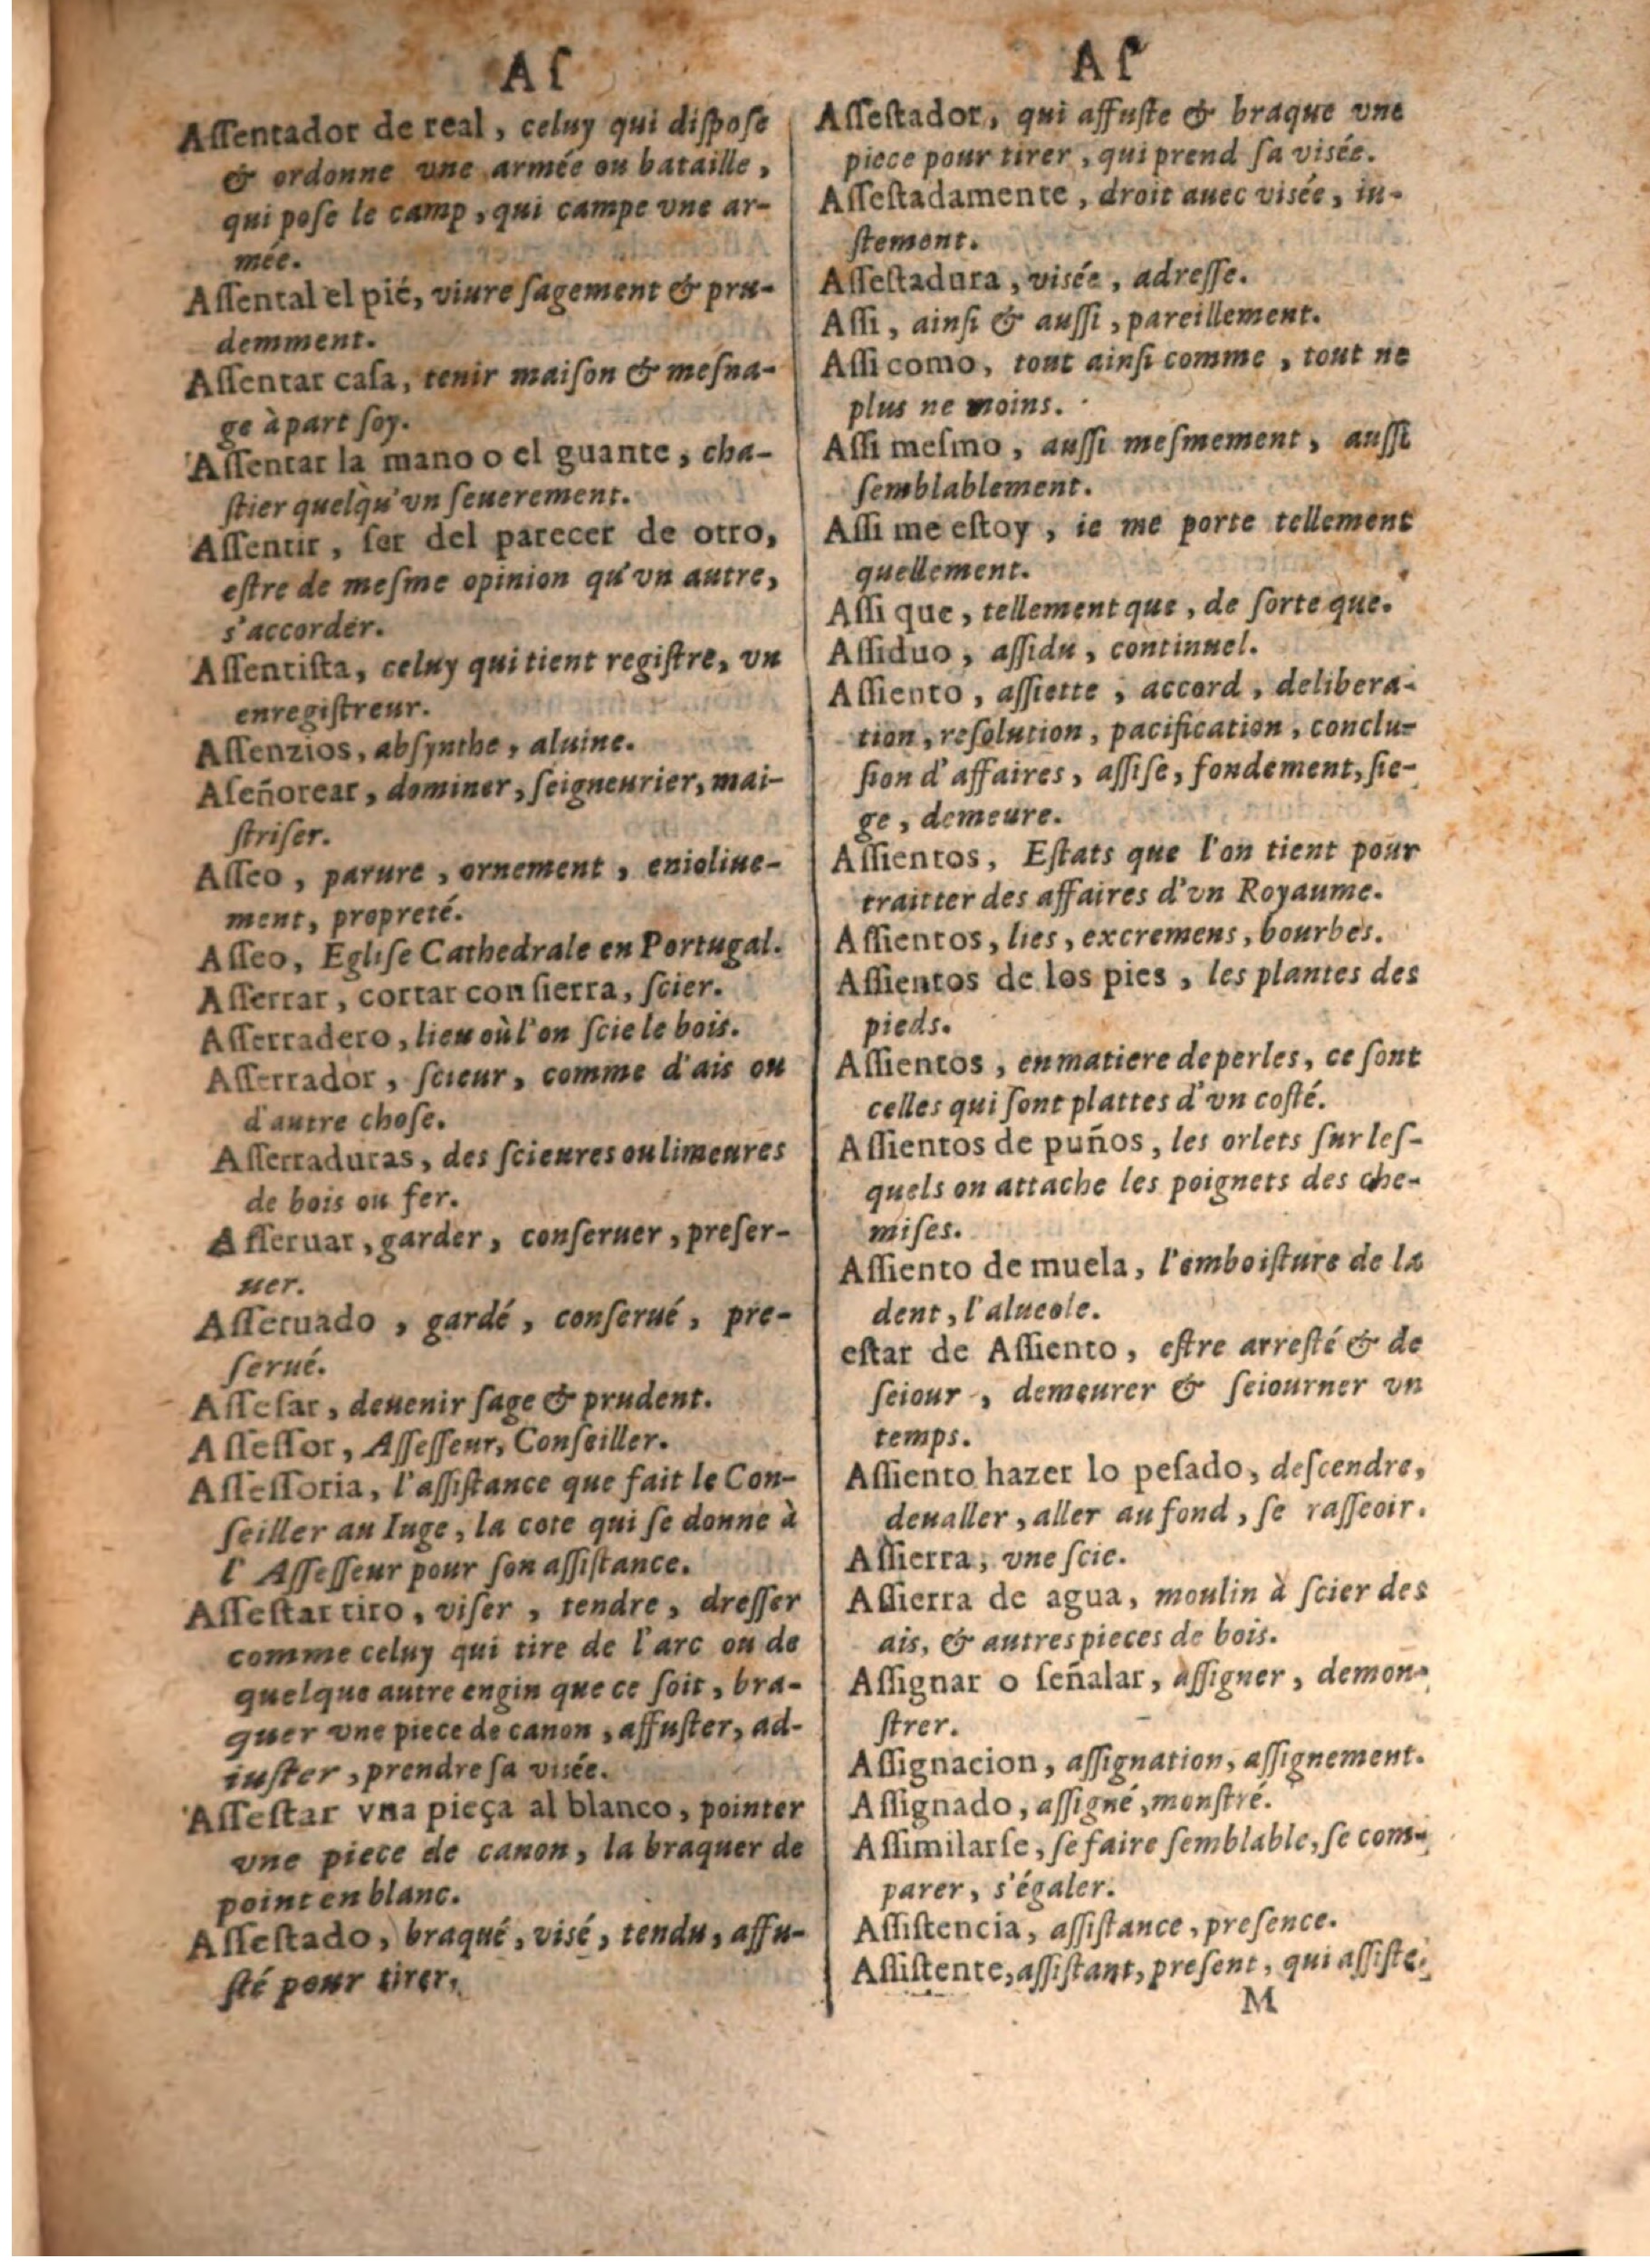 Aſ
Aſſentador de real, celuy qui diſpoſe
& ordonne vne armée ou bataille,
qui poſe le camp, qui campe vne ar-
mée.
Aſſental el pié, viure ſagement & pru-
demment.
Aſſentar caſa, tenir maiſon & meſna-
ge à part ſoy.
Aſſentar la mano o el guante, cha-
ſtier quelqu'vn ſeuerement.
Aſſentir, ſer del parecer de otro,
eſtre de meſme opinion qu'vn autre,
s'accorder.
Aſſentiſta, celuy qui tient regiſtre, vn
enregiſtreur.
Aſſenzios, abſynthe, aluine.
Aſeñorear, dominer, ſeigneurier, mai-
ſtriſer.
Aſſeo, parure, ornement, enioliue-
ment, propreté.
Aſſeo, Egliſe Cathedrale en Portugal.
Aſſerrar, cortar con ſierra, ſcier.
Aſſerradero, lieu où l'on ſcie le bois.
Aſſerrador, ſcieur, comme d'ais ou
d'autre choſe.
Aſſerraduras, des ſcieures ou limeures
de bois ou fer.
Aſſeruar, garder, conſeruer, preſer-
uer.
Aſſeruado, gardé, conſerué, pre-
ſerué.
Aſſeſar, deuenir ſage & prudent.
Aſſeſſor, Aſſeſſeur, Conſeiller.
Aſſeſſoria, l'aſſiſtance que fait le Con-
ſeiller au Iuge, la cote qui ſe donne à
l'Aſſeſſeur pour ſon aſſiſtance.
Aſſeſtar tiro, viſer, tendre, dreſſer
comme celuy qui tire de l'arc ou de
quelque autre engin que ce ſoit, bra-
quer vne piece de canon, affuſter, ad-
iuſter, prendre ſa viſée.
Aſſeſtar vna pieça al blanco, pointer
vne piece de canon, la braquer de
point en blanc.
Aſſeſtado, braqué, viſé, tendu, affu-
ſté pour tirer,
Aſ
Aſſeſtador, qui affuſte & braque vne
piece pour tirer, qui prend ſa viſée.
Aſſeſtadamente, droit auec viſée, iu-
ſtement.
Aſſeſtadura, viſée, adreſſe.
Aſſi, ainſi & auſſi, pareillement.
Aſſi como, tout ainſi comme, tout ne
plus ne moins.
Aſſi meſmo, auſſi meſmement, auſſi
ſemblablement.
Aſſi me eſtoy, ie me porte tellement
quellement.
Aſſi que, tellement que, de ſorte que.
Aſſiduo, aſſidu, continuel.
Aſſiento, aſſiette, accord, delibera-
tion, reſolution, pacification, conclu-
ſion d'affaires, aſſiſe, fondement, ſie-
ge, demeure.
Aſſientos, Eſtats que l'on tient pour
traitter des affaires d'vn Royaume.
Aſſientos, lies, excremens, bourbes.
Aſſientos de los pies, les plantes des
pieds.
Aſſientos, en matiere de perles, ce ſont
celles qui ſont plattes d'vn coſté.
Aſſientos de puños, les orlets ſur leſ-
quels on attache les poignets des che-
miſes.
Aſſiento de muela, l'emboiſture de la
dent, l'alueole.
eſtar de Aſſiento, eſtre arreſté & de
ſeiour, demeurer & ſeiourner vn
temps.
Aſſiento hazer lo peſado, deſcendre,
deualler, aller au fond, ſe raſſeoir.
Aſſierra, vne ſcie.
Aſſierra de agua, moulin à ſcier des
ais, & autres pieces de bois.
Aſſignar o ſeñalar, aſſigner, demon-
ſtrer.
Aſſignacion, aſſignation, aſſignement.
Aſſignado, aſſigné, monſtré.
Aſſimilarſe, ſe faire ſemblable, ſe com-
parer, s'égaler.
Aſſiſtencia, aſſiſtance, preſence.
Aſſiſtente, aſſiſtant, preſent, qui aſſiſte.
M